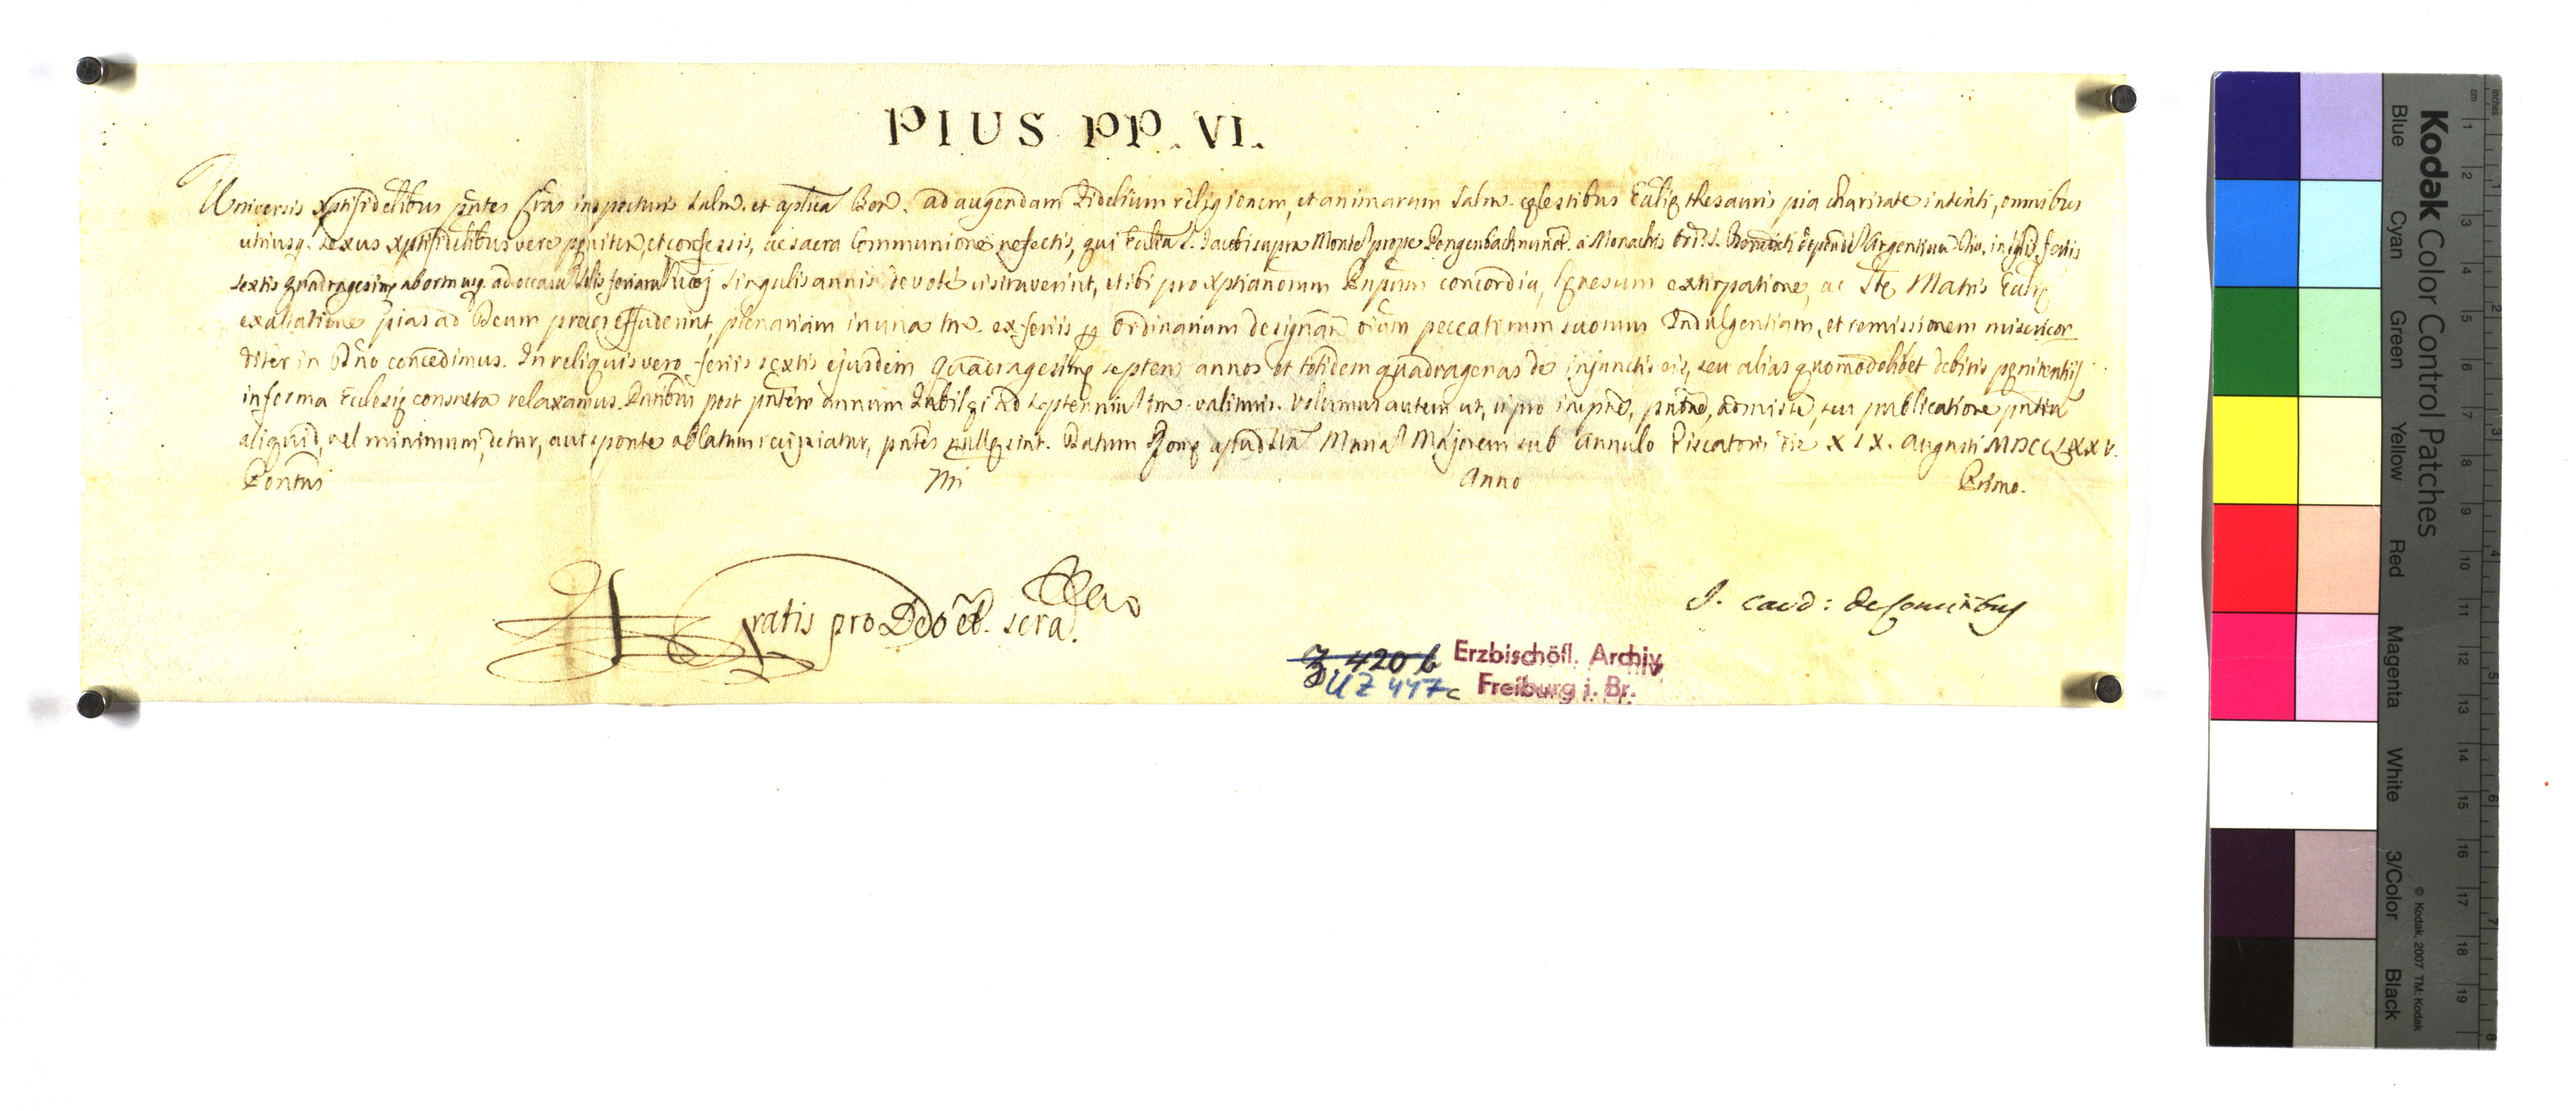 PIUS PP. VI.
Universis Xptifidelibus pñtes Lras inspecturis Salm. et aplicã Ben. ad augendam Fidelium religionem, et animarum salm. cęlestibus Ecclię thesauris pia charitate intenti, omnibus
utriusq. sexus Xptifidelibus vere pęniten, et confessis, ac sacra Communione refectis, qui Eccliã S. Jacobi supra Monte prope Gengenbach nunct. a Monachis Ord. S. Benedicti dependen Argentinen Dio. in feriis
sextis quadragesimę ab ortu usq. ad occasu Solis feriarum hujõi singulis annis devote visitaverint, et ibi pro Xptianorum Pnpum concordia, hęresum extirpatione, ac Stę Matris Eccl̃ię
exaltatione pias ad Deum preces effuderint, plenariam in una tñ. ex feriis per Ordinarium designan oium peccatorum suorum Indulgentiam, et remissionem misericor
diter in Dño concedimus. In reliquis vero feriis sextis ejusdem quadragesimę septem annos et totidem quadragenas de injunctis eis, seu alias quomodolibet debitis pęnitentijs
in forma Ecclesię consueta relaxamus. Pñtibus post pñtem annum Jubilęi ad septennium tñ. valituris. Volumus autem ut, si pro impne, pñtne, admisse, seu publicatione pñtium
aliquid, vel minimum, detur, aut sponte oblatum recipiatur, pñtes nullę sint. Datum Romę apud Stam Mariam Majorem sub Annulo Piscatoris die XIX. Augusti MDCCLXXV.
Pontus Nri Anno Primo.
Gratis pro Deo et. scra.
J. Card: de Comitibus
Z. 420 b Erzbischöfl. Archiv
UZ 447c Freiburg i. Br.
Kodak Color Control Patches
Blue Cyan Green Yellow Red Magenta White 3/Color Black
© Kodak, 2007 TM: Kodak
inches
cm
1 2 3 4 5 6 7 8 9 10 11 12 13 14 15 16 17 18 19
1 2 3 4 5 6 7 8